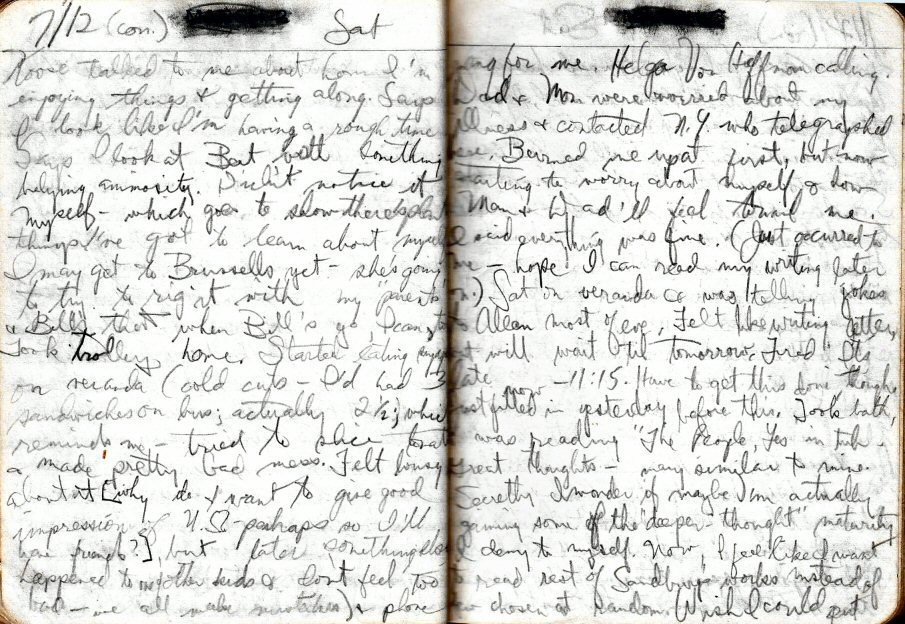 7/12 (con.) Sat
Roose talked to me about how I'm
enjoying things & getting along. Says
I look like I'm having a rough time
Says I look at Bert with something
helying animosity. Didn't notice it
myself - which goes to show there's plen
things I've got to learn about myself
I may get to Brussells yet - she's going
to try to rig it with my "parents
& Bill's that when Bill's go I can, to
Took trolley home. Started eating supper
on veranda (cold cuts - I'd had 3
sandwiches on bus; actually 2 1/2; which
reminds me - tried to slice tomato
& made pretty bad mess. Felt lousy
about it [why do I want to give good
impression of U.S. - perhaps so I'll
have friends?], but later something else
happened to other kids & don't feel too
bad - we all make mistakes) & phone
rang for me. Helga Von Hoffman calling.
Dad & Mom were worried about my
illness & contacted N.Y. who telegraphed
here. Burned me up at first, but now
starting to worry about myself & how
Mom & Dad'll feel toward me.
I said everything was fine. (Just occurred to
me - hope I can read my writing later
on.) Sat on veranda & was telling jokes
to Allan most of eve. Felt like writing letter,
but will wait 'til tomorrow. Tired. It's
late now - 11:15. Have to get this done though,
just filled in yesterday before this. Took bath,
& was reading "The People, Yes" in tub.
Great thoughts - many similar to mine.
Secretly I wonder if maybe I'm actually
gaining some of the "deeper-thought" maturity
I deny to myself. Now, I feel like I want
to read rest of Sandburg's works instead of
few chosen at random. Wish I could put